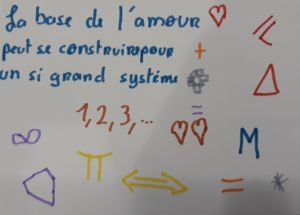 La base de l'amour
peut se construire pour
un si grand système
+
=
1, 2, 3, ...
∞
π
⇔
=
M
*